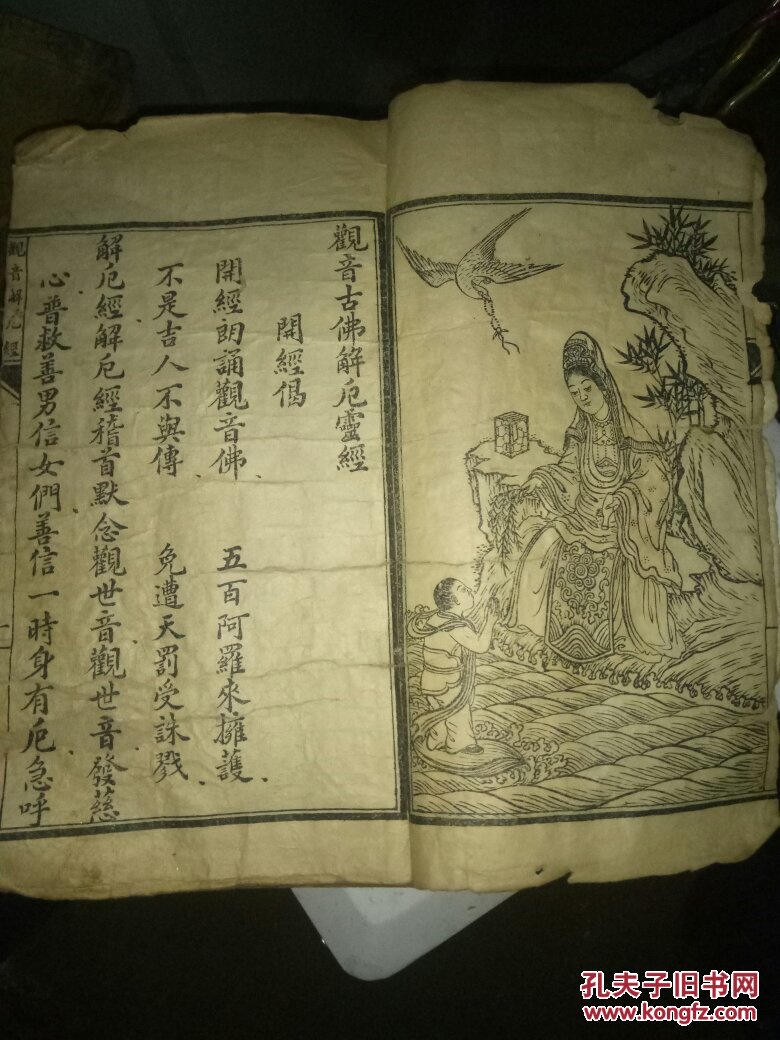 觀音古佛解厄靈經
開經偈
開經朗誦觀音佛、 五百阿羅來擁護、
不是吉人不與傳、 免遭天罰受誅戮、
解厄經解厄經稽首默念觀世音觀世音發慈
心普救善男信女們善信一時身有厄急呼
觀音解厄經
一
孔夫子旧书网
www.kongfz.com